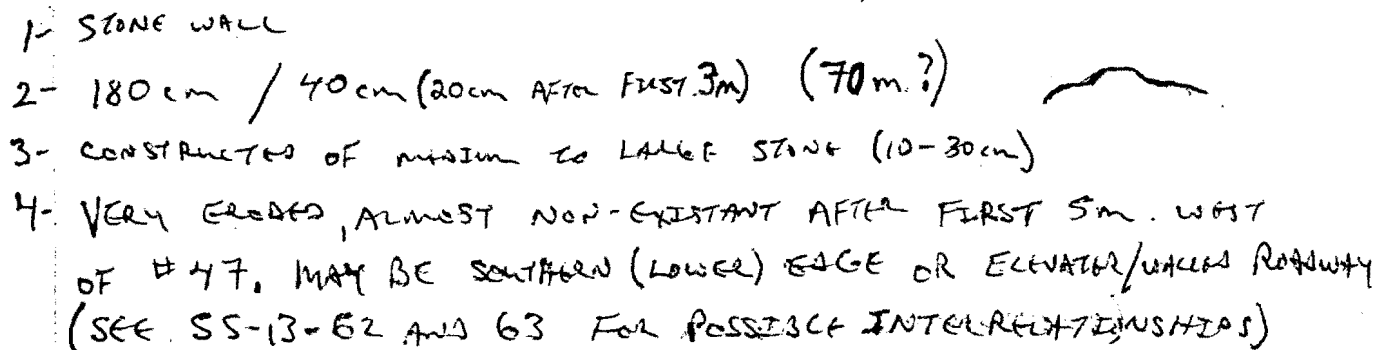 1- STONE WALL
2- 180 cm / 40 cm (20 cm AFTER FIRST 3m) (70 m.?)
3- CONSTRUCTED OF MEDIUM to LARGE STONE (10-30 cm)
4- VERY ERODED, ALMOST NON-EXISTANT AFTER FIRST 5m. WEST
OF #47. MAY BE SOUTHERN (LOWER) EDGE OR ELEVATED/WALLED ROADWAY
(SEE SS-13-62 AND 63 FOR POSSIBLE INTERRELATIONSHIPS)